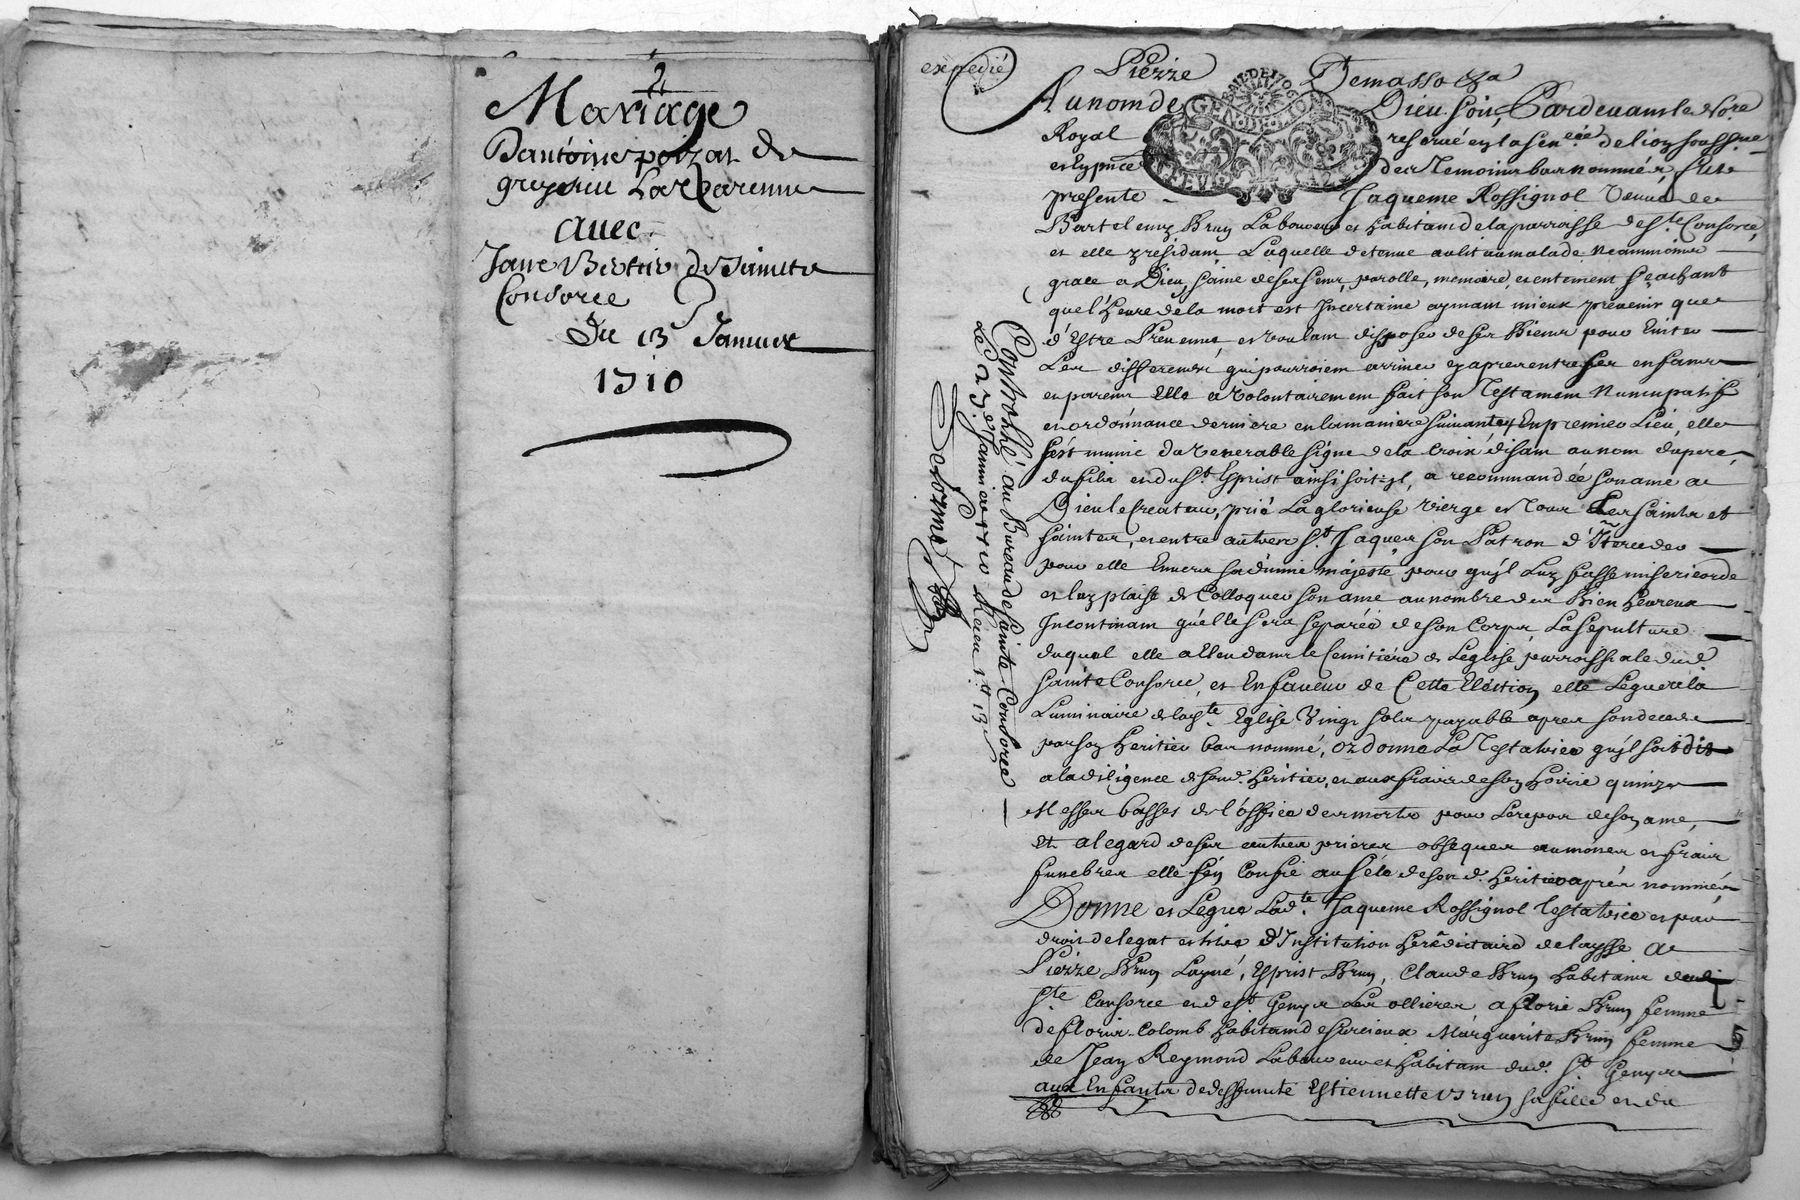 2
Mariage
D'antoine poizat de
gregoire La Varenne
avec
Jane Bertie de Saincte
Consorce
Du 13 Januier
1710
expedié
Pierre Demasso &a
Au nom de Dieu soit, Pardeuant le No.re
Royal reserué en la sen.ée de lion soussi.né
et en pnce des Temoins bas nommés, fut
presente Jaqueme Rossignol Veuue de
Bartelemy Brun Laboureur et habitant de la parroisse de S.te Consorce,
et elle y residant, Laquelle detenue au lit au malade neammoins
grace a Dieu, saine de ses sens, parolle, memoire, et entement scachant
que l'heure de la mort est Incertaine aymant mieux preuenir que
d'Estre Preuenue, et voulant disposer de ses Biens pour Euiter
Les differents qui pourroient arriuer cy apres entre ses enfants
et parents Elle a volontairement fait son Testament Nuncupatif
et ordonnance derniere en la maniere suiuante, En premier Lieu, elle
s'est munie du venerable signe de la Croix disant au nom du pere,
du fils et du S.t Esprist ainsi soit-jl, a recommandée son ame a
Dieu le Createur, prié La glorieuse vierge et Tous Les saints et
saintes, et entre autres S.t Jaques son Patron d'Interceder
pour elle Enuers sa diuine majesté pour qu'jl Luy fasse misericorde
et luy plaise de Colloquer son ame au nombre des Bien heureux
Incontinant qu'elle sera separée de son Corps, La sepulture
duquel elle a Eleu dans le Cemitiére de Leglise parroissiale dud.
sainte Consorce, et En faueur de Cette Eléction elle Legue a la
Luminaire de lad.te Eglise Vingt sols payable apres son deceds
par son heritier bas nommé, ordonne La Testatrice qu'jl soit dit
a la diligence de sond. heritier, et aux fraix de son hoirie quinze
Messes basses de l'office des morts pour Le repos de son ame,
Et a legard de ses autres prieres obseques aumônes et fraix
funebres elle s'en Confie au sele de son d. heritier aprés nommé
Donne et Legue Lad.te Jaqueme Rossignol Testatrice et par
droit de legat et titre d'Institution heréditaire delaysse a
Pierre Brun Layné, Esprist Brun, Claude Brun habitants dud.
S.te Consorce et de S.t Genys Les ollieres a florie Brun femme
de floris Colomb habitant de surcieux Marguerite Brun femme
de Jean Reymond Laboureur et habitant dud. S.t Genys
aux Enfants de deffunte Estiennette Brun sa fille et du
Controllé au Bureau de Sainte Consorce
Le 23.e Januier 1710 Receu